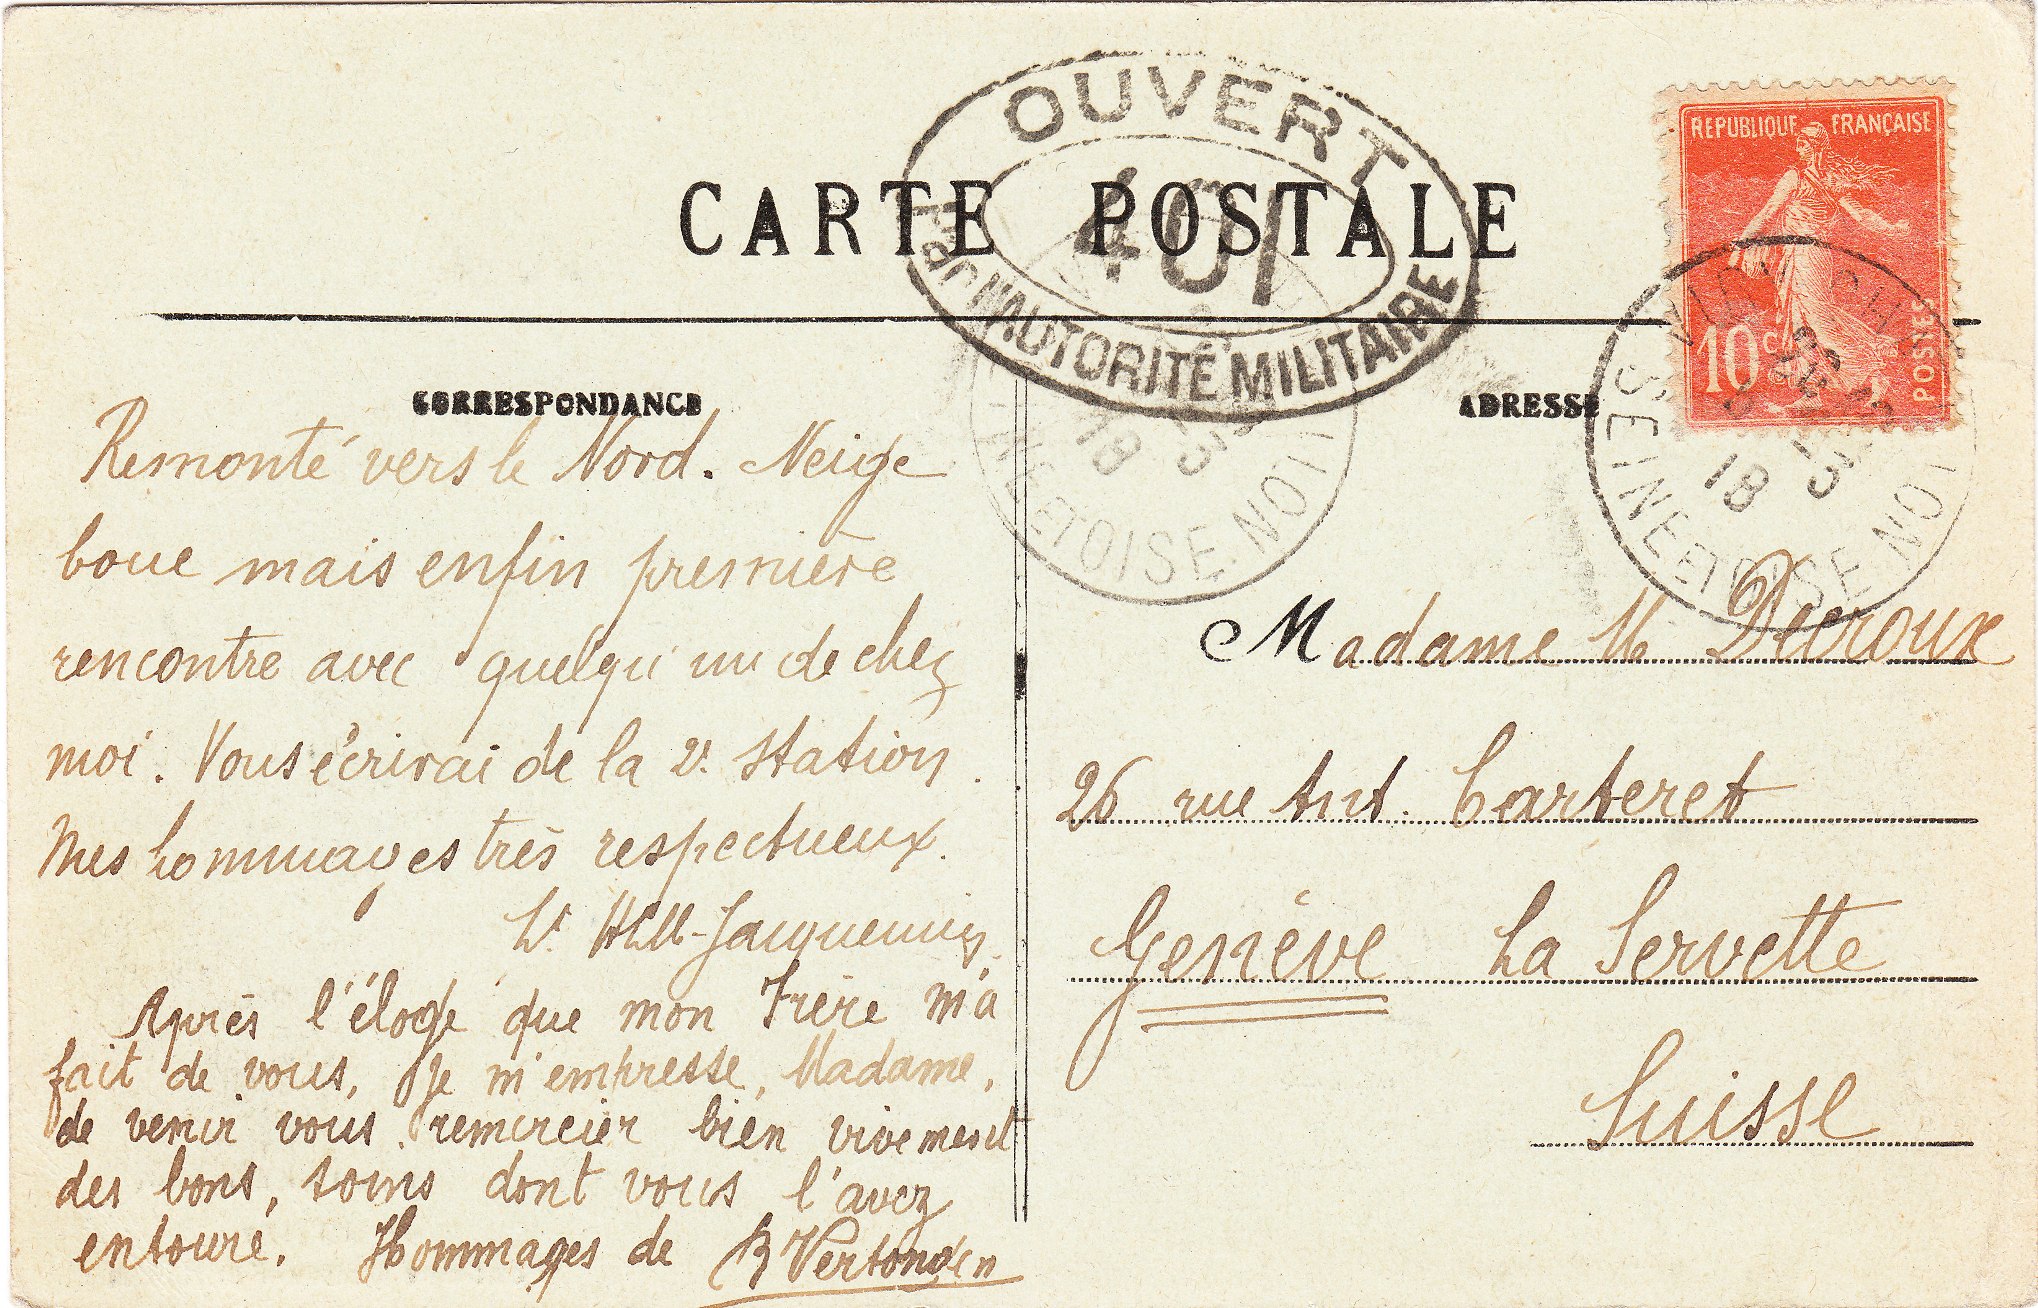 CARTE POSTALE
OUVERT
401
PAR L'AUTORITÉ MILITAIRE
REPUBLIQUE FRANÇAISE
10c
POSTES
SEINE ET OISE
18
SEINE ET OISE
18
CORRESPONDANCE
Remonté vers le Nord. Neige
boue mais enfin première
rencontre avec quelqu'un de chez
moi. Vous écrirai de la 2e station.
Mes hommages très respectueux.
Lt
Après l'éloge que mon Frère m'a
fait de vous, je m'empresse, Madame,
de venir vous remercier bien vivement
des bons, soins dont vous l'avez
entouré. Hommages de
ADRESSE
Madame M Decroux
26 rue Ant. Carteret
Genève La Servette
Suisse